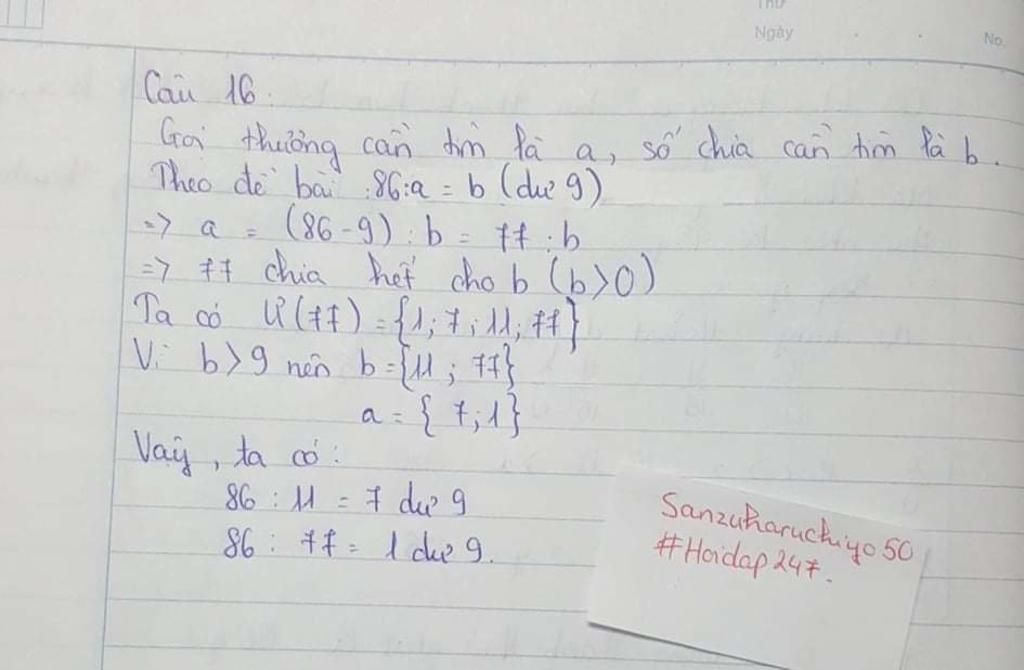 Thứ
Ngày
No.
Câu 16:
Gọi thương cần tìm là a, số chia cần tìm là b.
Theo đề bài: 86:a = b (dư 9)
=> a = (86-9) : b = 77 : b
=> 77 chia hết cho b (b>0)
Ta có Ư(77) = {1; 7; 11; 77}
Vì b>9 nên b = {11; 77}
a = {7; 1}
Vậy, ta có:
86 : 11 = 7 dư 9
86 : 77 = 1 dư 9.
Sanzuharuchiyo50
#Hoidap247.